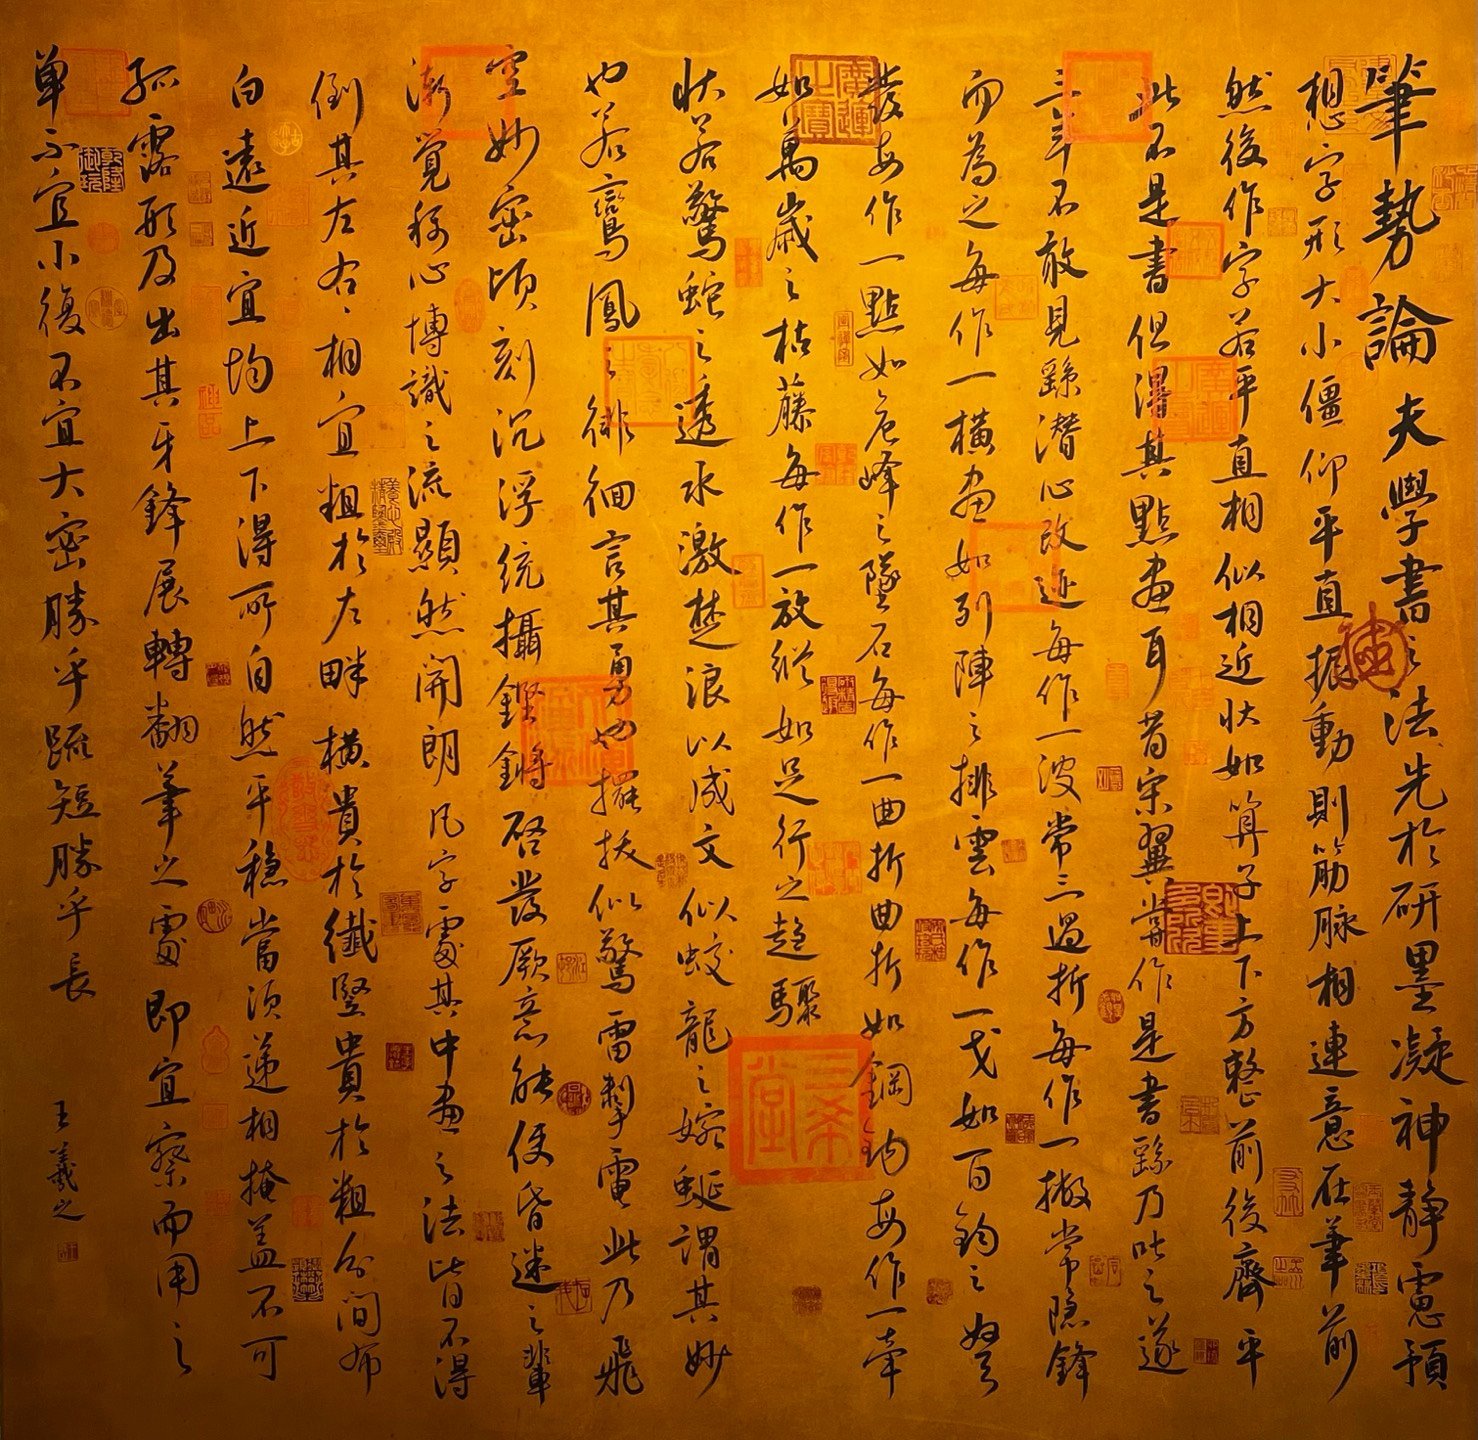 筆勢論夫學書之法先於研墨凝神靜慮預
想字形大小偃仰平直振動則筋脉相連意在筆前
然後作字若平直相似相近狀如算子上下方整前後齊平
此不是書但得其點畫耳昔宋翼常作是書繇乃叱之遂
三年不敢見繇潛心改迹每作一波常三過折每作一撇常隱鋒
而為之每作一橫畫如列陣之排雲每作一戈如百鈞之弩
發每作一點如危峰之墜石每作一曲折曲折如鋼鉤每作一牽
如萬歲之枯藤每作一放縱如足行之趨驟
狀若驚蛇之透水激楚浪以成文似蛟龍之婉蜒謂其妙
也若鸞鳳之徘徊言其勇也擺撥似驚雷掣電此乃飛
空妙密頃刻沉浮統攝鏗鏘啓發厥意能使昏迷之輩
漸覺稱心博識之流顯然開朗凡字處其中畫之法皆不得
倒其左右右相宜粗於左畔橫貴於纖豎貴於粗分間布
白遠近宜均上下得所自然平穩當須遞相掩蓋不可
孤露形及出其牙鋒展轉翻筆之處即宜察而用之
單不宜小復不宜大密勝乎疏短勝乎長
王羲之
三希堂